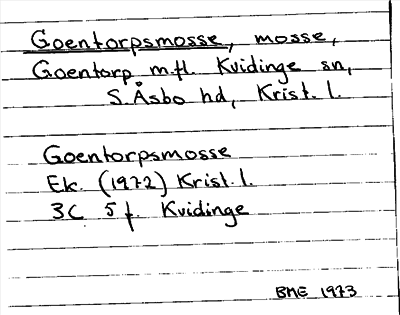 Goentorpsmosse, mosse,
Goentorp m.fl. Kvidinge sn,
S. Åsbo hd, Krist. l.
Goentorpsmosse
Ek. (1972) Krist. l.
3C 5f. Kvidinge
BME 1973